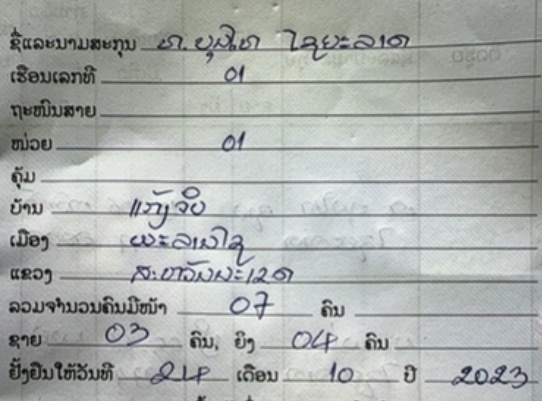 ຊື່ແລະນາມສະກຸນ ທ. ບຸນໄທ ໄຊຍະລາດ
ເຮືອນເລກທີ 01
ຖະໜົນສາຍ
ໜ່ວຍ 01
ຄຸ້ມ
ບ້ານ ແກ້ງຈິບ
ເມືອງ ພະລານໄຊ
ແຂວງ ສະຫວັນນະເຂດ
ລວມຈຳນວນຄົນມີໜ້າ 07 ຄົນ
ຊາຍ 03 ຄົນ, ຍິງ 04 ຄົນ
ຢັ້ງຢືນໃຫ້ວັນທີ 24 ເດືອນ 10 ປີ 2023